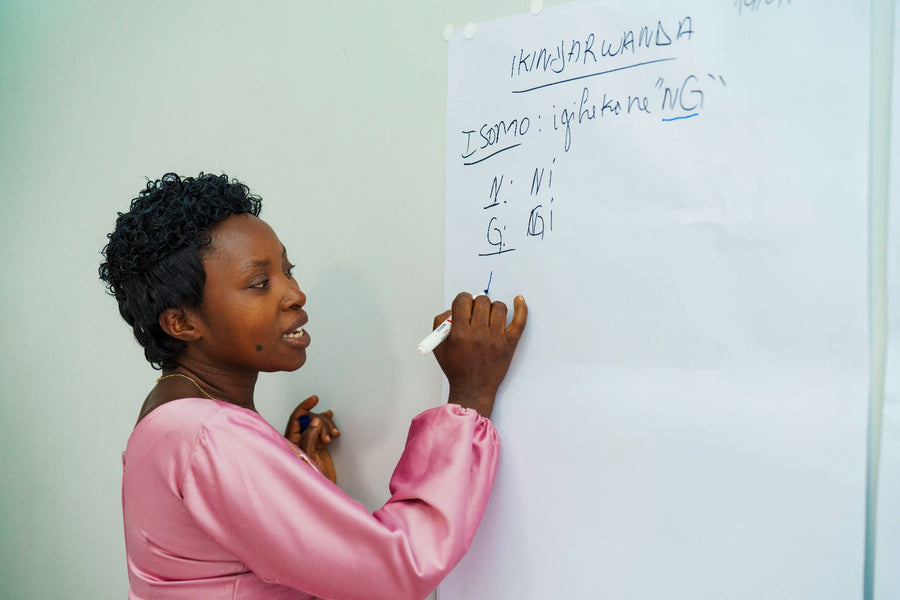 IKINYARWANDA
ISOMO: igihekane "NG"
N: Ni
G: Gi